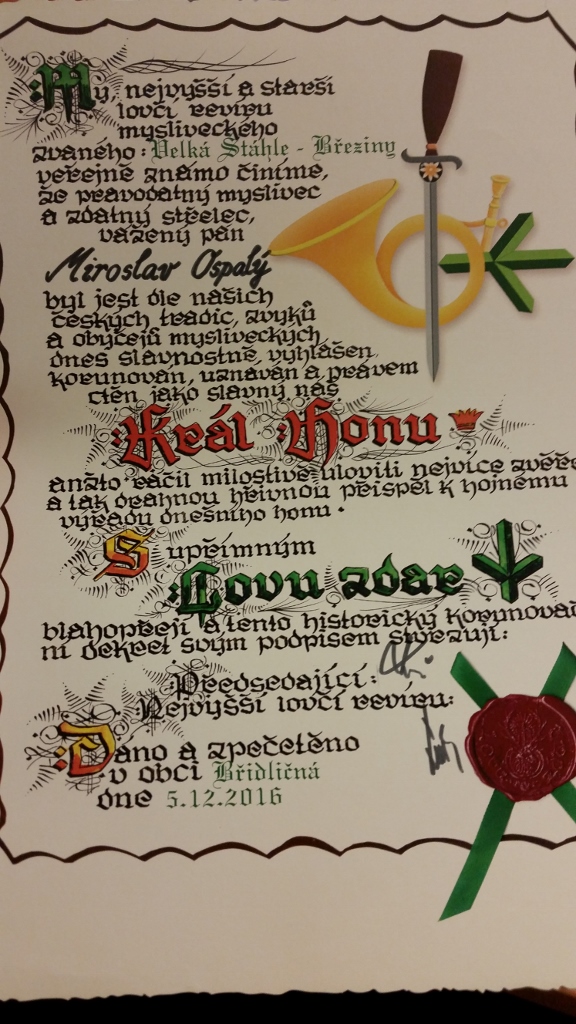 My, nejvyšší a starší
lovčí revíru
mysliveckého
zvaného: Velká Štáhle - Březiny
veřejně známo činíme,
že pravodatný myslivec
a zdatný střelec,
vážený pán
Miroslav Ospalý
byl jest dle našich
českých tradic, zvyků
a obyčejů mysliveckých
dnes slavnostně, vyhlášen,
korunován, uznáván a právem
ctěn jako slavný náš
Král Honu
anžto ráčil milostivě uloviti nejvíce zvěře
a tak drahnou hřivnou přispěl k hojnému
výřadu dnešního honu.
S upřímným
Lovu zdar
blahopřejí a tento historický korunovač
ní dekret svým podpisem stvrzují:
Předsedající:
Nejvyšší lovčí revíru:
Dáno a zpečetěno
v obci Břidličná
dne 5.12.2016